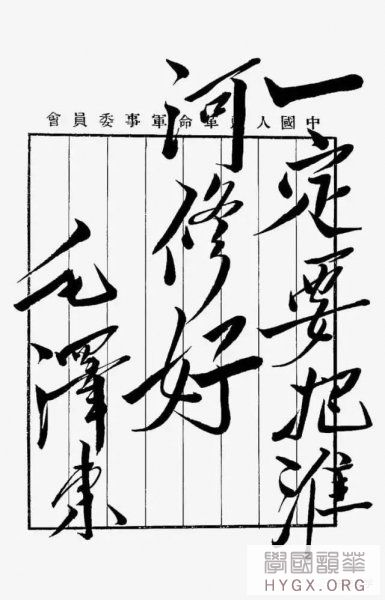 中國人民革命軍事委員會
一定要把淮
河修好
毛澤東
華韻國學
HYGX.ORG